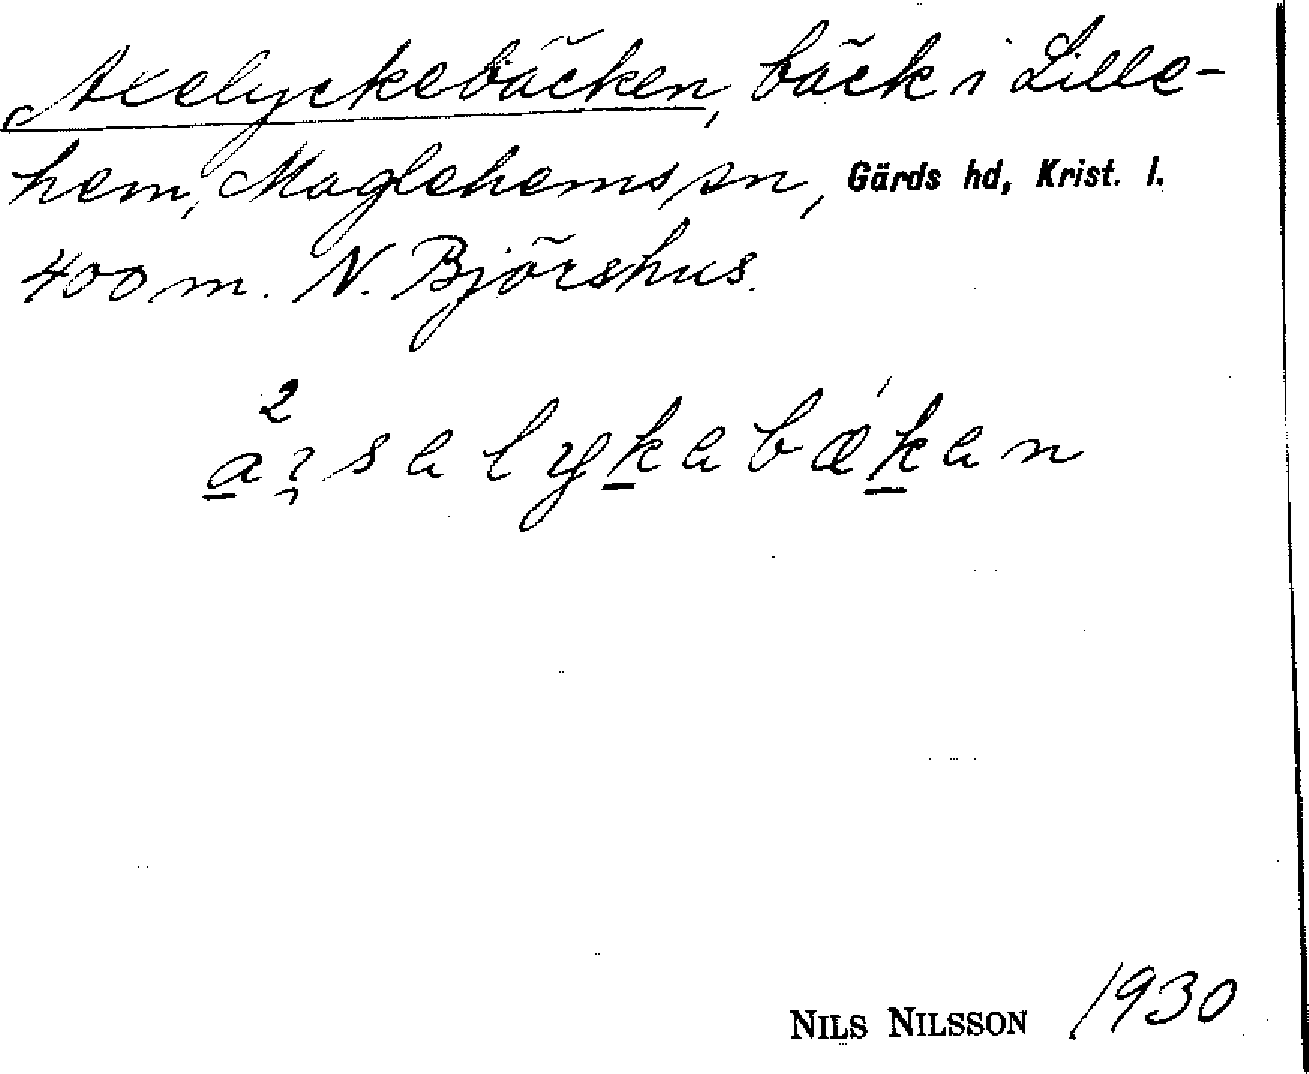 Axelyckebäcken, bäck i Lille-
hem, Maglehems sn, Gärds hd, Krist. l.
400 m. N. Björshus.
NILS NILSSON 1930